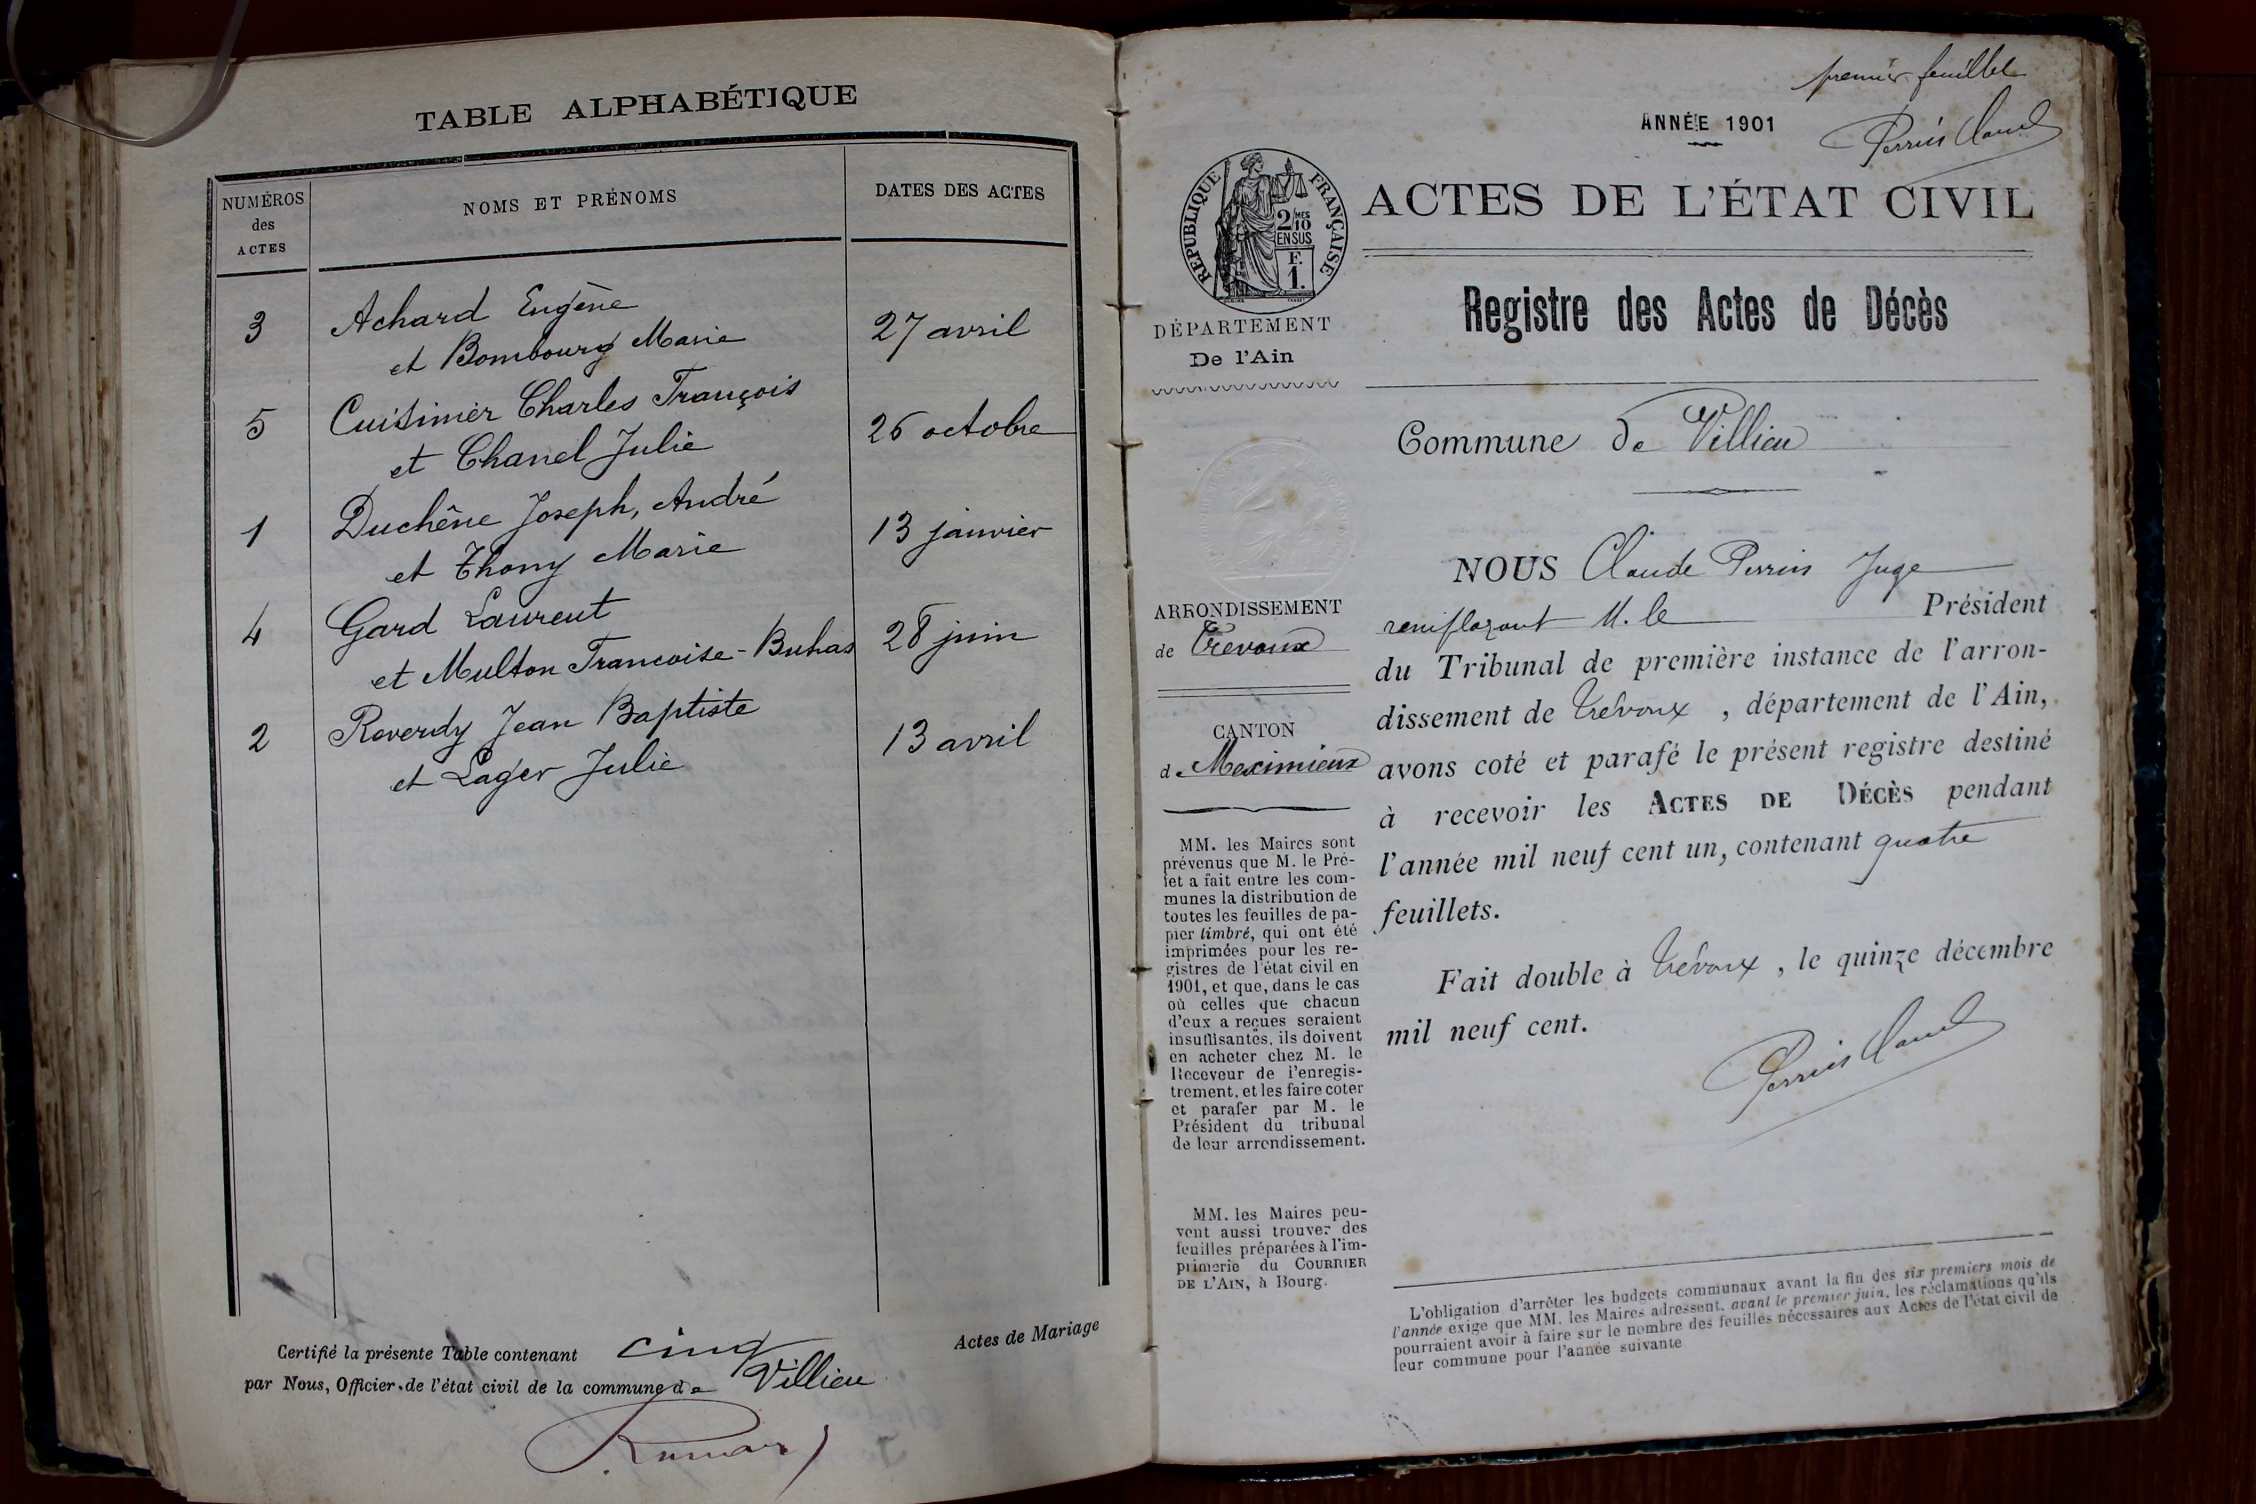 TABLE ALPHABÉTIQUE
NUMÉROS
des
ACTES
NOMS ET PRÉNOMS
DATES DES ACTES
3 Achard Eugène
et Bombourg Marie 27 avril
5 Cuisinier Charles François
et Chanel Julie 26 octobre
1 Duchêne Joseph, André
et Thony Marie 13 janvier
4 Gard Laurent
et Multon Francoise-Buhas 28 juin
2 Reverdy Jean Baptiste
et Lager Julie 13 avril
Certifié la présente Table contenant cinq Actes de Mariage
par Nous, Officier de l'état civil de la commune de Villieu
premier feuillet
Perrin Claude
ANNÉE 1901
RÉPUBLIQUE FRANÇAISE
2/10
MES
EN SUS
F.
1.
ACTES DE L'ÉTAT CIVIL
Registre des Actes de Décès
DÉPARTEMENT
De l'Ain
Commune de Villieu
ARRONDISSEMENT
de Trévoux
CANTON
de Meximieux
MM. les Maires sont
prévenus que M. le Pré-
fet a fait entre les com-
munes la distribution de
toutes les feuilles de pa-
pier timbré, qui ont été
imprimées pour les re-
gistres de l'état civil en
1901, et que, dans le cas
où celles que chacun
d'eux a reçues seraient
insuffisantes, ils doivent
en acheter chez M. le
Receveur de l'enregis-
trement, et les faire coter
et parafer par M. le
Président du tribunal
de leur arrondissement.
MM. les Maires peu-
vent aussi trouver des
feuilles préparées à l'im-
primerie du COURRIER
DE L'AIN, à Bourg.
NOUS Claude Perrin Juge
remplaçant M. le Président
du Tribunal de première instance de l'arron-
dissement de Trévoux, département de l'Ain,
avons coté et parafé le présent registre destiné
à recevoir les ACTES DE DÉCÈS pendant
l'année mil neuf cent un, contenant quatre
feuillets.
Fait double à Trévoux, le quinze décembre
mil neuf cent.
Perrin Claude
L'obligation d'arrêter les budgets communaux avant la fin des six premiers mois de
l'année exige que MM. les Maires adressent, avant le premier juin, les réclamations qu'ils
pourraient avoir à faire sur le nombre des feuilles nécessaires aux Actes de l'état civil de
leur commune pour l'année suivante